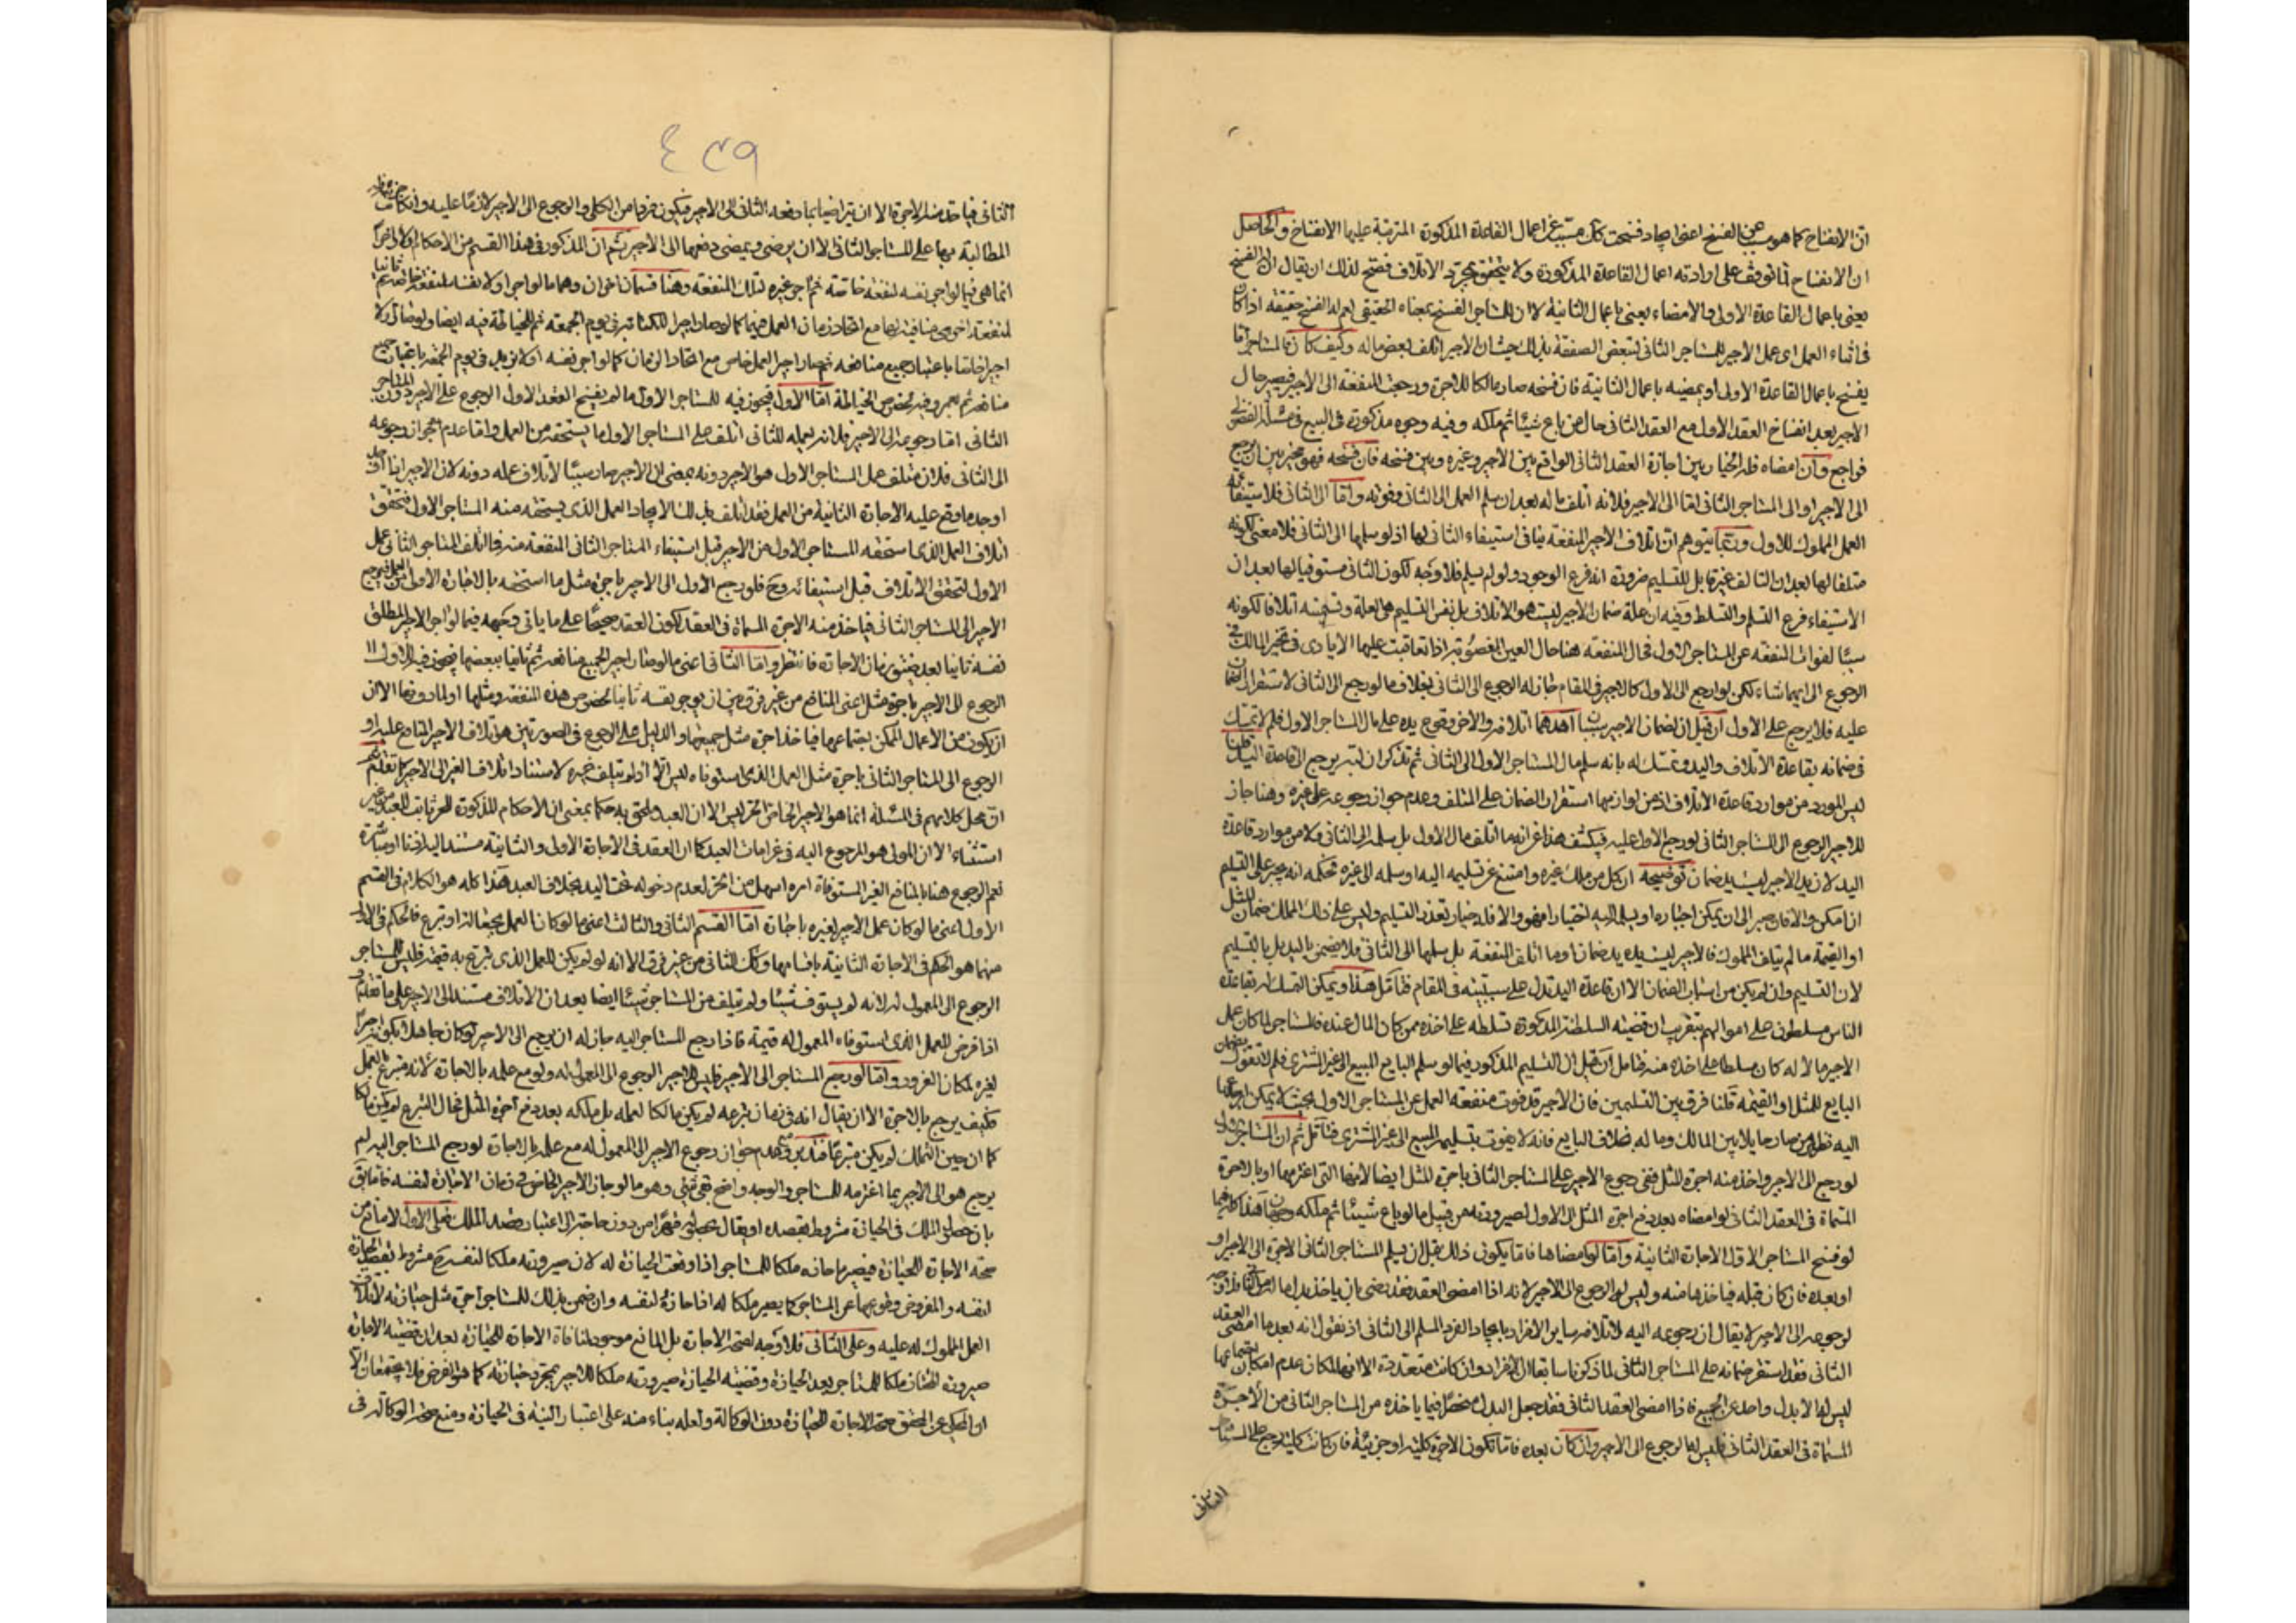 ان الانفساخ كما هو مسبب عن الفسخ اعنى ايجاد فسخت كك مسبب عن اعمال القاعدة المذكورة المترتبة عليها الانفساخ والحاصل
ان الانفساخ لما توقف على ارادته اعمال القاعدة المذكورة ولا يتحقق بمجرد الاتلاف فصح لذلك ان يقال ان الفسخ
يعنى باعمال القاعدة الاولى والامضاء يعنى باعمال الثانية لا ان للمستاجر الفسخ بمعناه الحقيقى نعم له الفسخ حقيقة اذا كان
فى اثناء العمل اى عمل الاجير للمستاجر الثانى لتبعض الصفقة بذلك حيث ان الاجير اتلف بعض ماله وكيف كان فالمستاجر اما
يفسخ باعمال القاعدة الاولى او يمضيه باعمال الثانية فان فسخه صار مالكا للاجرة ورجعت المنفعة الى الاجير فيصير حال
الاجير بعد انفساخ العقد الاول مع العقد الثانى حال من باع شيئا ثم ملكه وفيه وجوه مذكورة فى البيع فى مسئلة الفضولى
فراجع وان امضاه فله الخيار بين اجازة العقد الثانى الواقع بين الاجير وغيره وبين فسخه فان فسخه فهو مخير بين ان يرجع
الى الاجير او الى المستاجر الثانى اما الى الاجير فلانه اتلف ماله بعد ان سلم العمل الى الثانى وفوته واما الى الثانى فلاستيفائه
العمل المملوك للاول وربما يتوهم ان اتلاف الاجير المنفعة ينافى استيفاء الثانى لها اذ لو سلمها الى الثانى فلا معنى لكونه
متلفا لها بعد ان التالف غير قابل للتسليم ضرورة انه فرع الوجود ولو لم يسلم فلا وجه لكون الثانى مستوفيا لها بعد ان
الاستيفاء فرع التسلم والتسلط وفيه ان علة ضمان الاجير ليست هو الاتلاف بل نفس التسليم هى العلة وتسميته اتلافا لكونه
سببا لفوات المنفعة عن المستاجر الاول فحال المنفعة هنا حال العين المغصوبة اذا تعاقبت عليها الايادى فى تخير المالك فى
الرجوع الى ايهما شاء لكن لو رجع الى الاول كالاجير فى المقام جاز له الرجوع الى الثانى بخلاف ما لو رجع الى الثانى لاستقرار الضمان
عليه فلا يرجع على الاول ان قيل ان لضمان الاجير سببان احدهما اتلافه والاخر وقوع يده على مال المستاجر الاول فلم لا تمسك
فى ضمانه بقاعدة الاتلاف واليد وتمسك له بانه سلم مال المستاجر الاول الى الثانى ثم تذكر ان لتبر يرجع الى قاعدة اليد قلنا
ليس المورد من موارد قاعدة الاتلاف اذ من لوازمها استقرار الضمان على المتلف وعدم جواز رجوعه على غيره وهنا جاز
للاجير الرجوع الى المستاجر الثانى لو رجع الاول عليه فيكشف هذا عن انه ما اتلف مال الاول بل سلمه الى الثانى ولا من موارد قاعدة
اليد لان يد الاجير ليست يد ضمان توضيحه ان كل من ملك غيره وامتنع عن تسليمه اليه او سلمه الى غيره فحكمه انه يجبر على التسليم
ان امكن والا فان صبر الى ان يمكن اجباره او يسلم اليه اختيارا فهو والا فله خيار تعذر التسليم وليس على ذلك الملك ضمان المثل
او القيمة ما لم يتلف المملوك فالاجير ليست يده يد ضمان وما اتلف المنفعة بل سلمها الى الثانى فلا يضمن باليد بل بالتسليم
لان التسليم وان لم يكن من اسباب الضمان الا ان قاعدة اليد تدل على سببيته فى المقام فتأمل هذا ويمكن التمسك له بقاعدة
الناس مسلطون على اموالهم بتقريب ان قضية السلطنة المذكورة تسلطه على اخذه ممن كان المال عنده فالمستاجر لما كان عمل
الاجير مالا له كان مسلطا على اخذه منه فتامل ان قيل ان التسليم المذكور فيما لو سلم البايع المبيع الى غير المشترى فلم لا تقول بضمان
البايع للمثل او القيمة قلنا فرق بين التسليمين فان الاجير قد فوت منفعة العمل عن المستاجر الاول بحيث لا يمكن ارجاعها
اليه نظير من صار حايلا بين المالك وماله بخلاف البايع فانه لا يفوت بتسليمه المبيع الى غير المشترى فتأمل ثم ان المستاجر الاول
لو رجع الى الاجير واخذ منه اجرة المثل ففى رجوع الاجير على المستاجر الثانى باجرة المثل ايضا لانها التى اغترمها او بالاجرة
المسماة فى العقد الثانى لو امضاه بعد دفع اجرة المثل الى الاول لصيرورته من قبيل ما لو باع شيئا ثم ملكه وجهان هذا كله فيما
لو فسخ المستاجر الاول الاجارة الثانية واما لو امضاها فاما يكون ذلك قبل ان يسلم المستاجر الثانى الاجرة الى الاجير او
او بعده فان كان قبله فياخذها منه وليس له الرجوع الى الاجير لانه اذا امضى العقد فقد رضى بان ياخذ بدل ماله من الثانى فلا وجه
لرجوعه الى الاجير لا يقال ان رجوعه اليه لاتلافه ساير الافراد بايجاد الفرد المسلم الى الثانى اذ نقول انه بعد ما امضى العقد
الثانى فقد استقر ضمانه على المستاجر الثانى لما ذكرنا سابقا ان الافراد وان كانت متعددة الا انها لمكان عدم امكان اجتماعها
ليس لها الا بدل واحد عن الجميع فاذا امضى العقد الثانى فقد جعل البدل منحصرا فيما ياخذه من المستاجر الثانى من الاجرة
المسماة فى العقد الثانى فليس له الرجوع الى الاجير وان كان بعده فاما تكون الاجرة كلية او جزئية فان كانت كلية رجع على المستاجر
الثانى
٤٣٩
الثانى فياخذ منه الاجرة الا ان يتراضيا بما دفعه الثانى الى الاجير فيكون فردا من الكلى والرجوع الى الاجير لازما عليه وان كانت جزئية فله
المطالبة بها على المستاجر الثانى الا ان يرضى ويمضى دفعها الى الاجير ثم ان المذكور فى هذا القسم من الاحكام
انما هى فيما لو اجر نفسه لمنفعة خاصة ثم اجر غيره لتلك المنفعة وهنا قسمان اخران وهما ما لو اجر اولا نفسه لمنفعة خاصة ثم ثانيا
لمنفعة اخرى منافية لها مع اتحاد زمان العمل فيهما كما لو صار اجيرا للكتابة فى يوم الجمعة ثم للخياطة فيه ايضا وما لو صار اولا
اجيرا خاصا باعتبار جميع منافعه ثم صار اجيرا لعمل خاص مع اتحاد الزمان كما لو اجر نفسه اولا من زيد فى يوم الجمعة باعتبار جميع
منافعه ثم لعمرو فيه لخصوص الخياطة اما الاول فيجوز فيه للمستاجر الاول ما لم يفسخ العقد الاول الرجوع على الاجير دون المستاجر
الثانى اما رجوعه الى الاجير فلانه بعمله للثانى اتلف على المستاجر الاول ما يستحقه من العمل واما عدم جواز رجوعه
الى الثانى فلان متلف عمل المستاجر الاول هو الاجير دونه بمعنى ان الاجير صار سببا لاتلاف عمله دونه لان الاجير
اوجد ما وقع عليه الاجارة الثانية من العمل فقد اتلف بذلك الايجاد العمل الذى يستحقه منه المستاجر الاول فتحقق
اتلاف العمل الذى استحقه المستاجر الاول من الاجير قبل استيفاء المستاجر الثانى المنفعة منه فما اتلف المستاجر الثانى عمل
الاول لتحقق الاتلاف قبل استيفائه وح فلو رجع الاول الى الاجير باجرة مثل ما استحقه بالاجارة الاولى من العمل فيرجع
الاجير الى المستاجر الثانى فياخذ منه الاجرة المسماة فى العقد لكون العقد صحيحا على ما ياتى وجهه فيما لو اجر الاجير المطلق
نفسه ثانيا بعد تضيق زمان الاجارة فانتظر واما الثانى اعنى ما لو صار اجيرا لجميع منافعه ثم ثانيا ببعضها فيجوز فيه للاول
الرجوع الى الاجير باجرة مثل اعلى المنافع من غير فرق بين ان يوجر نفسه ثانيا لخصوص هذه المنفعة ومثلها او لما دونها الا ان
يكون من الاعمال الممكن اجتماعها فياخذ اجرة مثل جميعها والدليل على الرجوع فى الصورتين هو اتلاف الاجير المنافع عليه او
الرجوع الى المستاجر الثانى باجرة مثل العمل الذى استوفاه ليس الا اذ لم يتلف غيره لاستناد اتلاف الغير الى الاجير كما تقدم ثم
ان محل كلامهم فى المسئلة انما هو الاجير الخاص الحر ليس الا ان العبد ملحق به حكما بمعنى ان الاحكام المذكورة للحر ثابت للعبد من غير
استثناء الا ان المولى هو المرجوع اليه فى غرامات العبد كما ان العقد فى الاجارة الاولى والثانية مستند اليه اذنا او مباشرة
نعم الرجوع هنا بالمنافع الغير المستوفاة امره اسهل من الحر لعدم دخوله تحت اليد بخلاف العبد هذا كله هو الكلام فى القسم
الاول اعنى ما لو كان عمل الاجير لغيره باجارة اما القسم الثانى والثالث اعنى ما لو كان العمل بجعالة او تبرع فالحكم فى الاول
منهما هو الحكم فى الاجارة الثانية باقسامها وكك الثانى من غير فرق الا انه لو لم يكن للعمل الذى تبرع به قيمة فليس للمستاجر
الرجوع الى المعمول له لانه لم يستوف شيئا ولم يتلف من المستاجر شيئا ايضا بعد ان الاتلاف مستند الى الاجير على ما تقدم و
اذا فرض للعمل الذى استوفاه المعمول له قيمة فاذا رجع المستاجر اليه جاز له ان يرجع الى الاجير لو كان جاهلا بكونه اجيرا
لغيره لمكان الغرور واما لو رجع المستاجر الى الاجير فليس للاجير الرجوع الى المعمول له ولو مع علمه بالاجارة لانه متبرع بالعمل
فكيف يرجع بالاجرة الا ان يقال انه فى زمان تبرعه لم يكن مالكا لعمله بل ملكه بعد دفع اجرة المثل فحال التبرع لم يكن مالكا
كما ان حين التملك لم يكن متبرعا فتدبر وعدم جواز رجوع الاجير الى المعمول له مع علمه بالاجارة لو رجع المستاجر اليه لم
يرجع هو الى الاجير بما اغترمه للمستاجر والوجه واضح بقى شئ وهو ما لو حاز الاجير الخاص فى زمان الاجارة لنفسه فاما نقول
بان حصول الملك فى الحيازة مشروط بقصده او يقال بحصوله قهرا من دون حاجة الى اعتبار قصد الملك فعلى الاول لا مانع من
صحة الاجارة للحيازة فيصير ما حازه ملكا للمستاجر اذا وقعت الحيازة له لان صيرورته ملكا لنفسه ح مشروط بقصد الحيازة
لنفسه والمفروض وقوعها عن المستاجر كما يصير ملكا له اذا حازه لنفسه وان ضمن بذلك للمستاجر اجرة مثل حيازته لاتلاف
العمل المملوك له عليه وعلى الثانى فلا وجه لصحة الاجارة بل المانع موجود لمنافاة الاجارة للحيازة بعد ان قضية الاجارة
صيرورة المحاز ملكا للمستاجر بعد الحيازة وقضية الحيازة صيرورته ملكا للاجير بمجرد حيازته كما هو الفرض فلا يجتمعان الا
ان المحكى عن المحقق صحة الاجارة للحيازة دون الوكالة ولعله بناء منه على اعتبار النية فى الحيازة ومنع صحة الوكالة فى